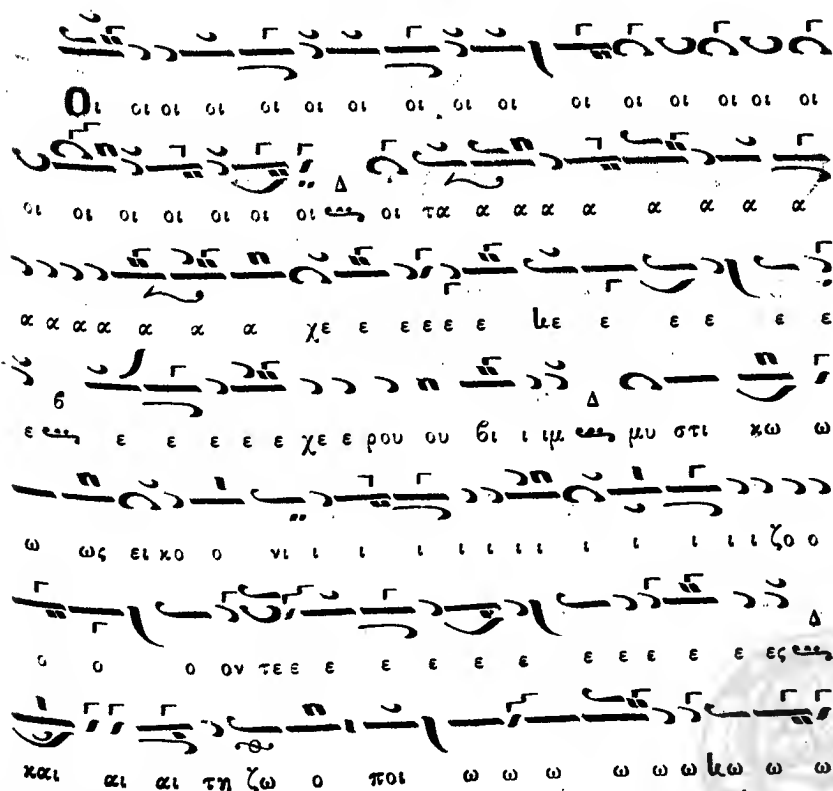 Οι οι οι οι οι οι οι οι οι οι οι οι οι οι οι οι
οι οι οι οι οι οι οι Δ οι τα α α α α α α α α
α α α α α α α χε ε ε ε ε ε κε ε ε ε ε ε
ε β ε ε ε ε ε χε ε ρου ου βι ι ιμ Δ μυ στι κω ω
ω ως ει κο ο νι ι ι ι ι ι ι ι ι ι ι ι ι ζο ο
ο ο ο ον τεε ε ε ε ε ε ε ε ε ε ε ες Δ
και αι αι τη ζω ο ποι ω ω ω ω ω ω κω ω ω